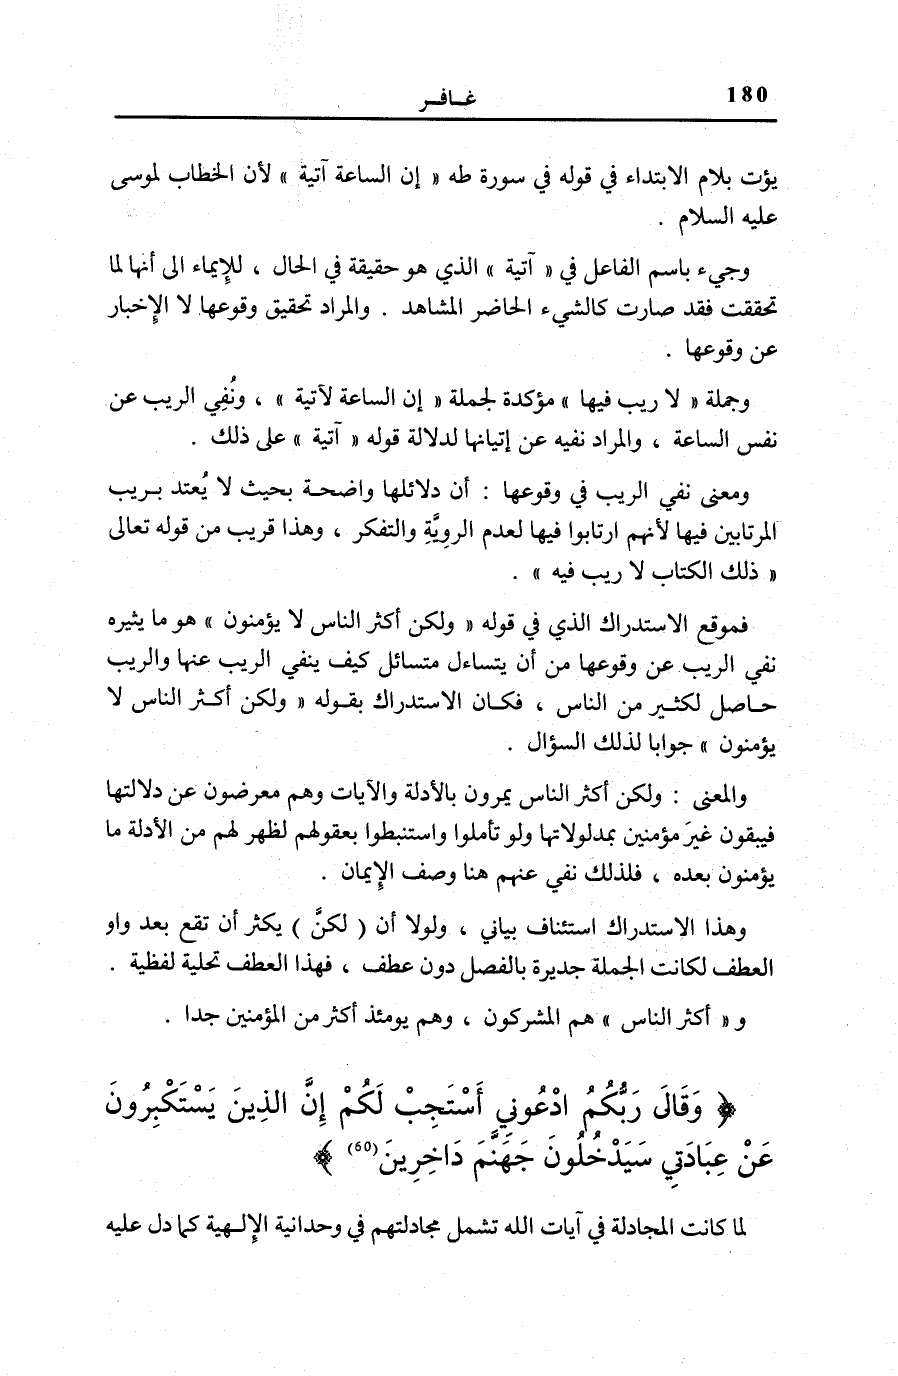 180
غـافـر
يؤت بلام الابتداء في قوله في سورة طه « إن الساعة آتية » لأن الخطاب لموسى
عليه السلام .
وجيء باسم الفاعل في « آتية » الذي هو حقيقة في الحال ، للإيماء الى أنها لما
تحققت فقد صارت كالشيء الحاضر المشاهد . والمراد تحقيق وقوعها لا الإخبار
عن وقوعها .
وجملة « لا ريب فيها » مؤكدة لجملة « إن الساعة لآتية » ، ونُفِي الريب عن
نفس الساعة ، والمراد نفيه عن إتيانها لدلالة قوله « آتية » على ذلك .
ومعنى نفي الريب في وقوعها : أن دلائلها واضحـة بحيث لا يُعتد بـريب
المرتابين فيها لأنهم ارتابوا فيها لعدم الرويَّةِ والتفكر ، وهذا قريب من قوله تعالى
« ذلك الكتاب لا ريب فيه » .
فموقع الاستدراك الذي في قوله « ولكن أكثر الناس لا يؤمنون » هو ما يثيره
نفي الريب عن وقوعها من أن يتساءل متسائل كيف ينفي الريب عنها والريب
حـاصل لكثـير من الناس ، فكـان الاستدراك بقـوله « ولكن أكـثر الناس لا
يؤمنون » جوابا لذلك السؤال .
والمعنى : ولكن أكثر الناس يمرون بالأدلة والآيات وهم معرضون عن دلالتها
فيبقون غيرَ مؤمنين بمدلولاتها ولو تأملوا واستنبطوا بعقولهم لظهر لهم من الأدلة ما
يؤمنون بعده ، فلذلك نفي عنهم هنا وصف الإيمان .
وهذا الاستدراك استئناف بياني ، ولولا أن ( لكنَّ ) يكثر أن تقع بعد واو
العطف لكانت الجملة جديرة بالفصل دون عطف ، فهذا العطف تحلية لفظية .
و « أكثر الناس » هم المشركون ، وهم يومئذ أكثر من المؤمنين جدا .
﴿ وَقَالَ رَبُّكُمُ ادْعُونِي أَسْتَجِبْ لَكُمْ إِنَّ الذِينَ يَسْتَكْبِرُونَ
عَنْ عِبَادَتِي سَيَدْخُلُونَ جَهَنَّمَ دَاخِرِينَ(60) ﴾
لما كانت المجادلة في آيات الله تشمل مجادلتهم في وحدانية الإلـهية كما دل عليه